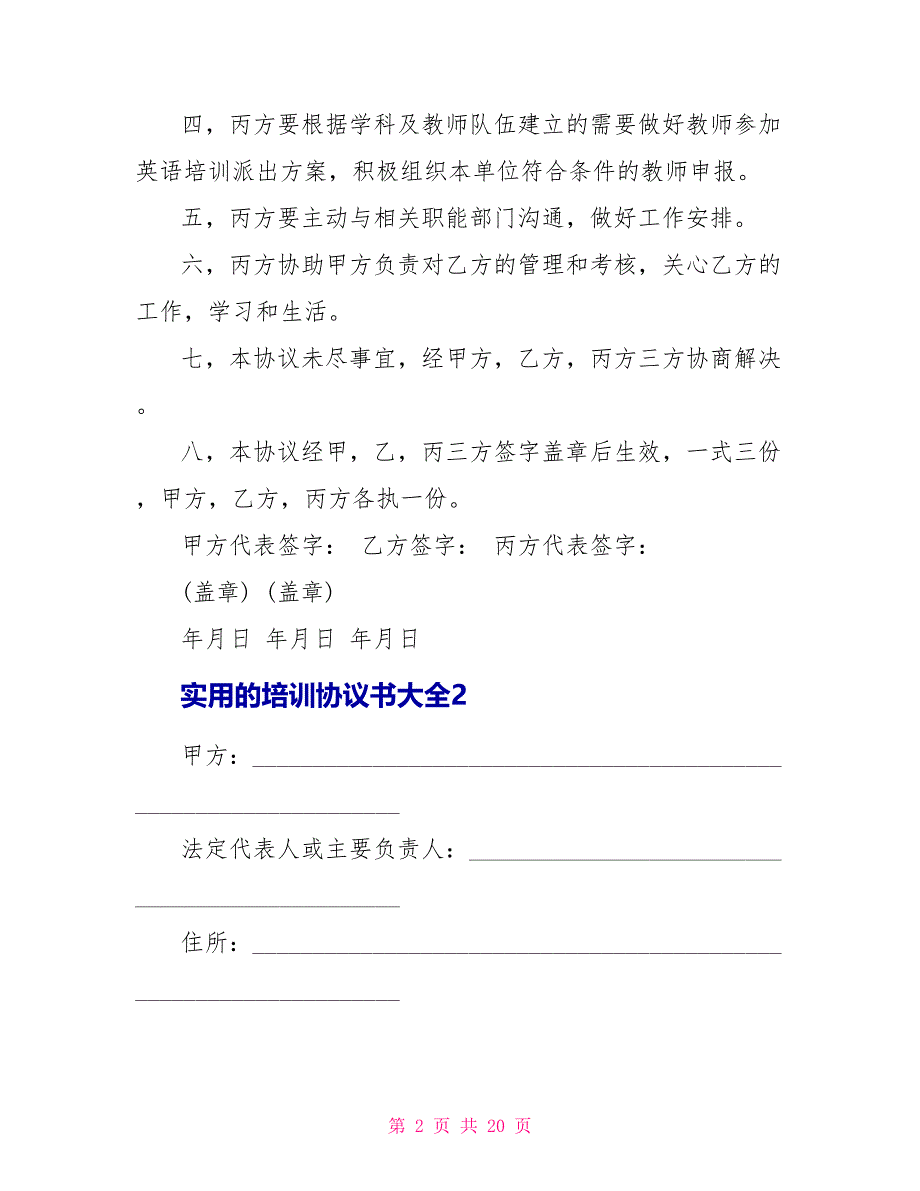 四，丙方要根据学科及教师队伍建立的需要做好教师参加
英语培训派出方案，积极组织本单位符合条件的教师申报。
五，丙方要主动与相关职能部门沟通，做好工作安排。
六，丙方协助甲方负责对乙方的管理和考核，关心乙方的
工作，学习和生活。
七，本协议未尽事宜，经甲方，乙方，丙方三方协商解决
。
八，本协议经甲，乙，丙三方签字盖章后生效，一式三份
，甲方，乙方，丙方各执一份。
甲方代表签字： 乙方签字： 丙方代表签字：
(盖章) (盖章)
年月日 年月日 年月日
实用的培训协议书大全2
甲方：____________________________________________
______________________
法定代表人或主要负责人：__________________________
______________________
住所：____________________________________________
______________________
第 2 页 共 20 页